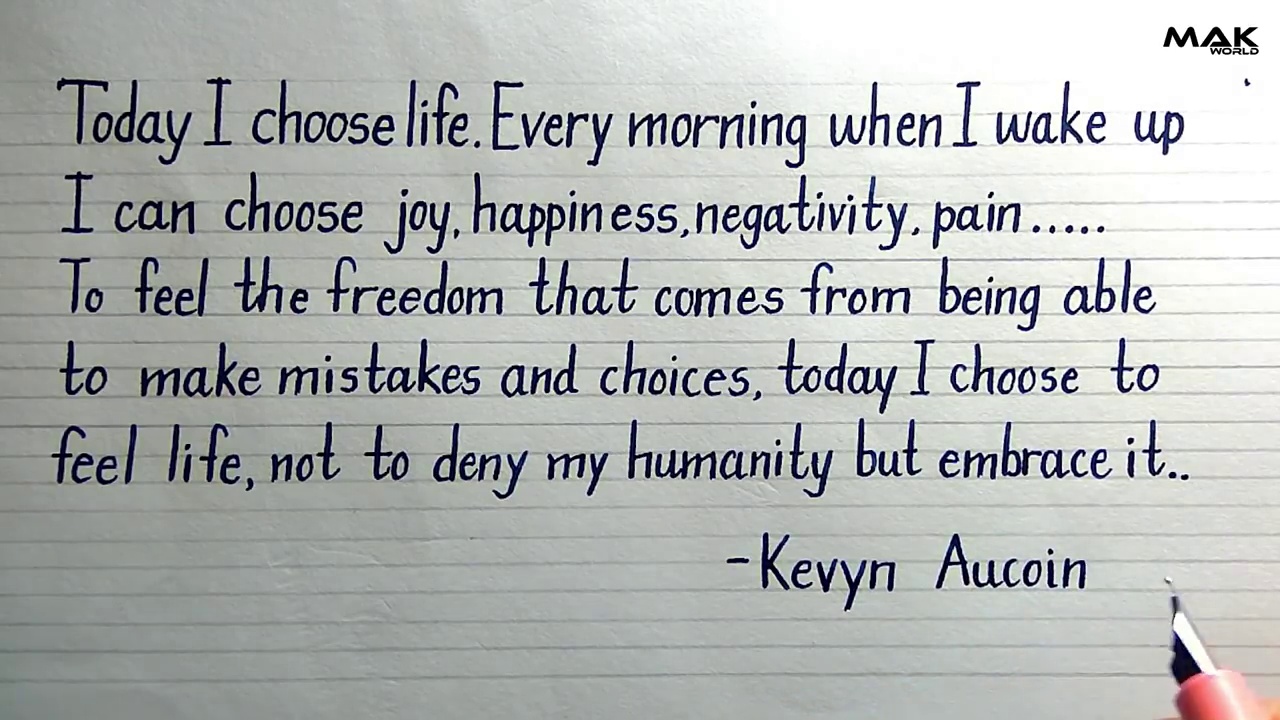 MAK
WORLD
Today I choose life. Every morning when I wake up
I can choose joy, happiness, negativity, pain.....
To feel the freedom that comes from being able
to make mistakes and choices, today I choose to
feel life, not to deny my humanity but embrace it..
-Kevyn Aucoin